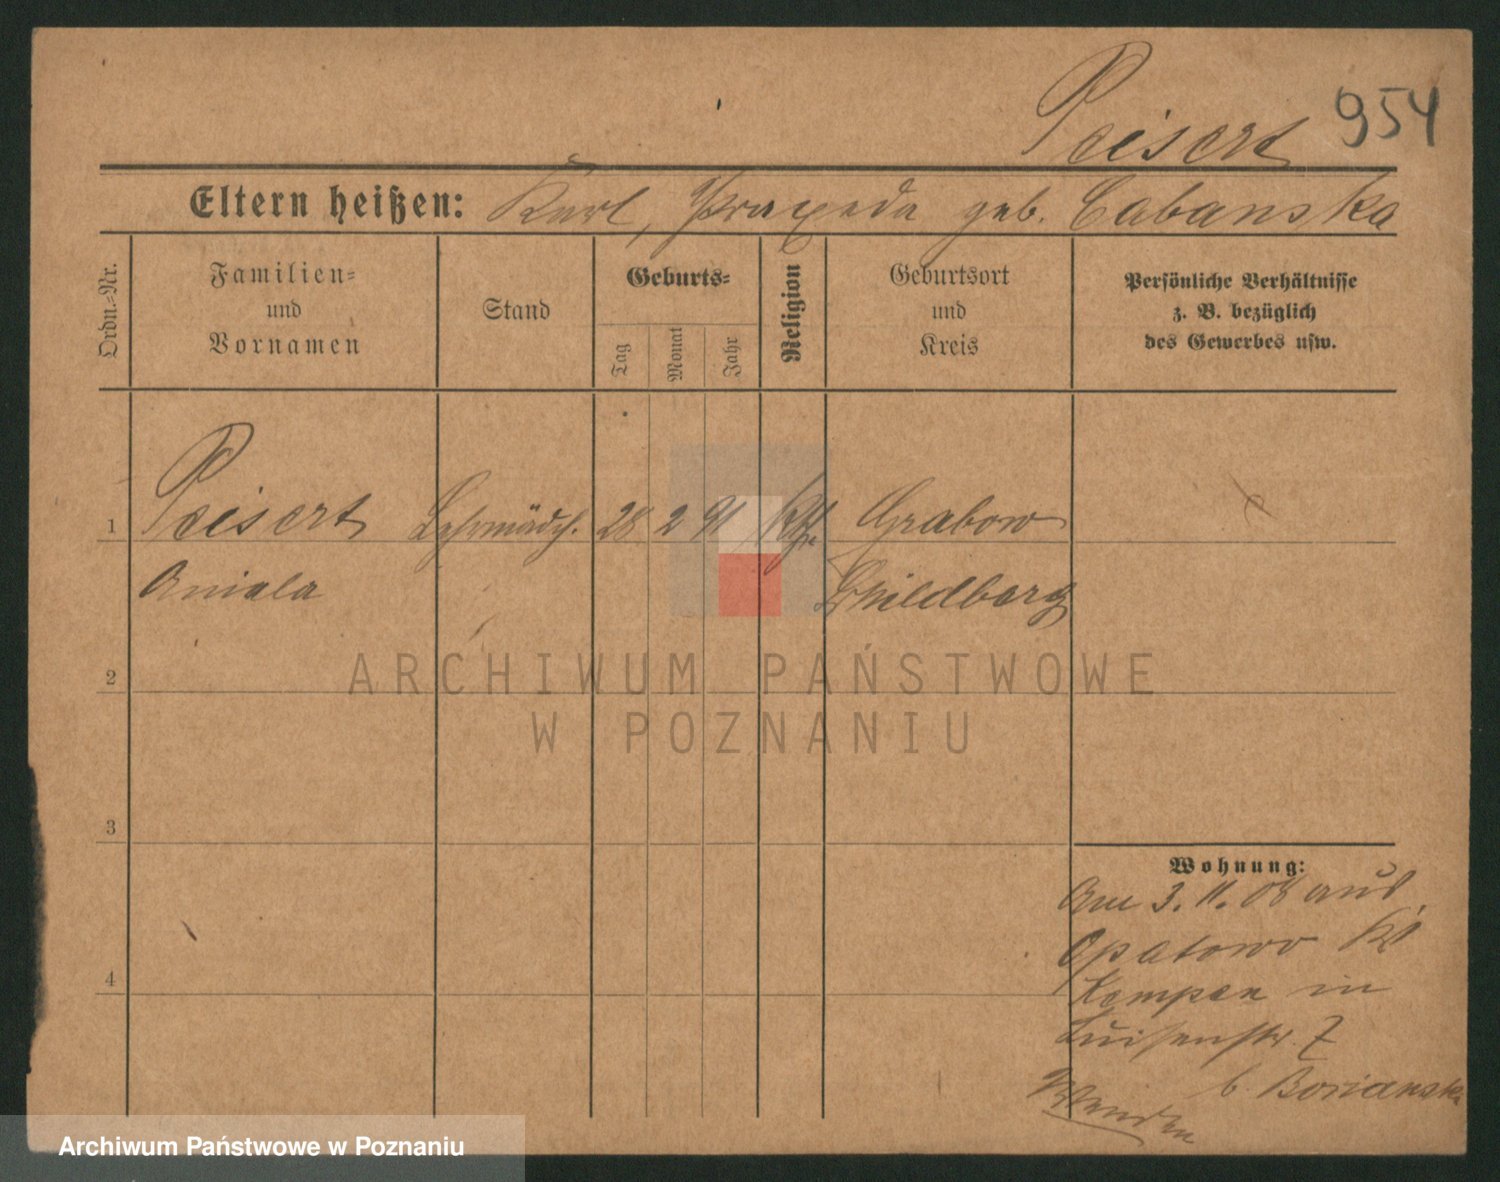 Peisert 954
Eltern heißen: Karl, Praxeda geb. Cabanska
Ordn.-Nr.
Familien-
und
Vornamen
Stand
Geburts-
Tag
Monat
Jahr
Religion
Geburtsort
und
Kreis
Persönliche Verhältnisse
z. B. bezüglich
des Gewerbes usw.
1 Peisert Lehrmädch. 28 2 91 kth. Grabow
Aniela Schildberg
2
3
4
Wohnung:
Am 3. 11. 08 aus
Opatowo Kr.
Kempen in
Luisenstr. 7
b. Borianska
Wenden
ARCHIWUM PAŃSTWOWE
W POZNANIU
Archiwum Państwowe w Poznaniu